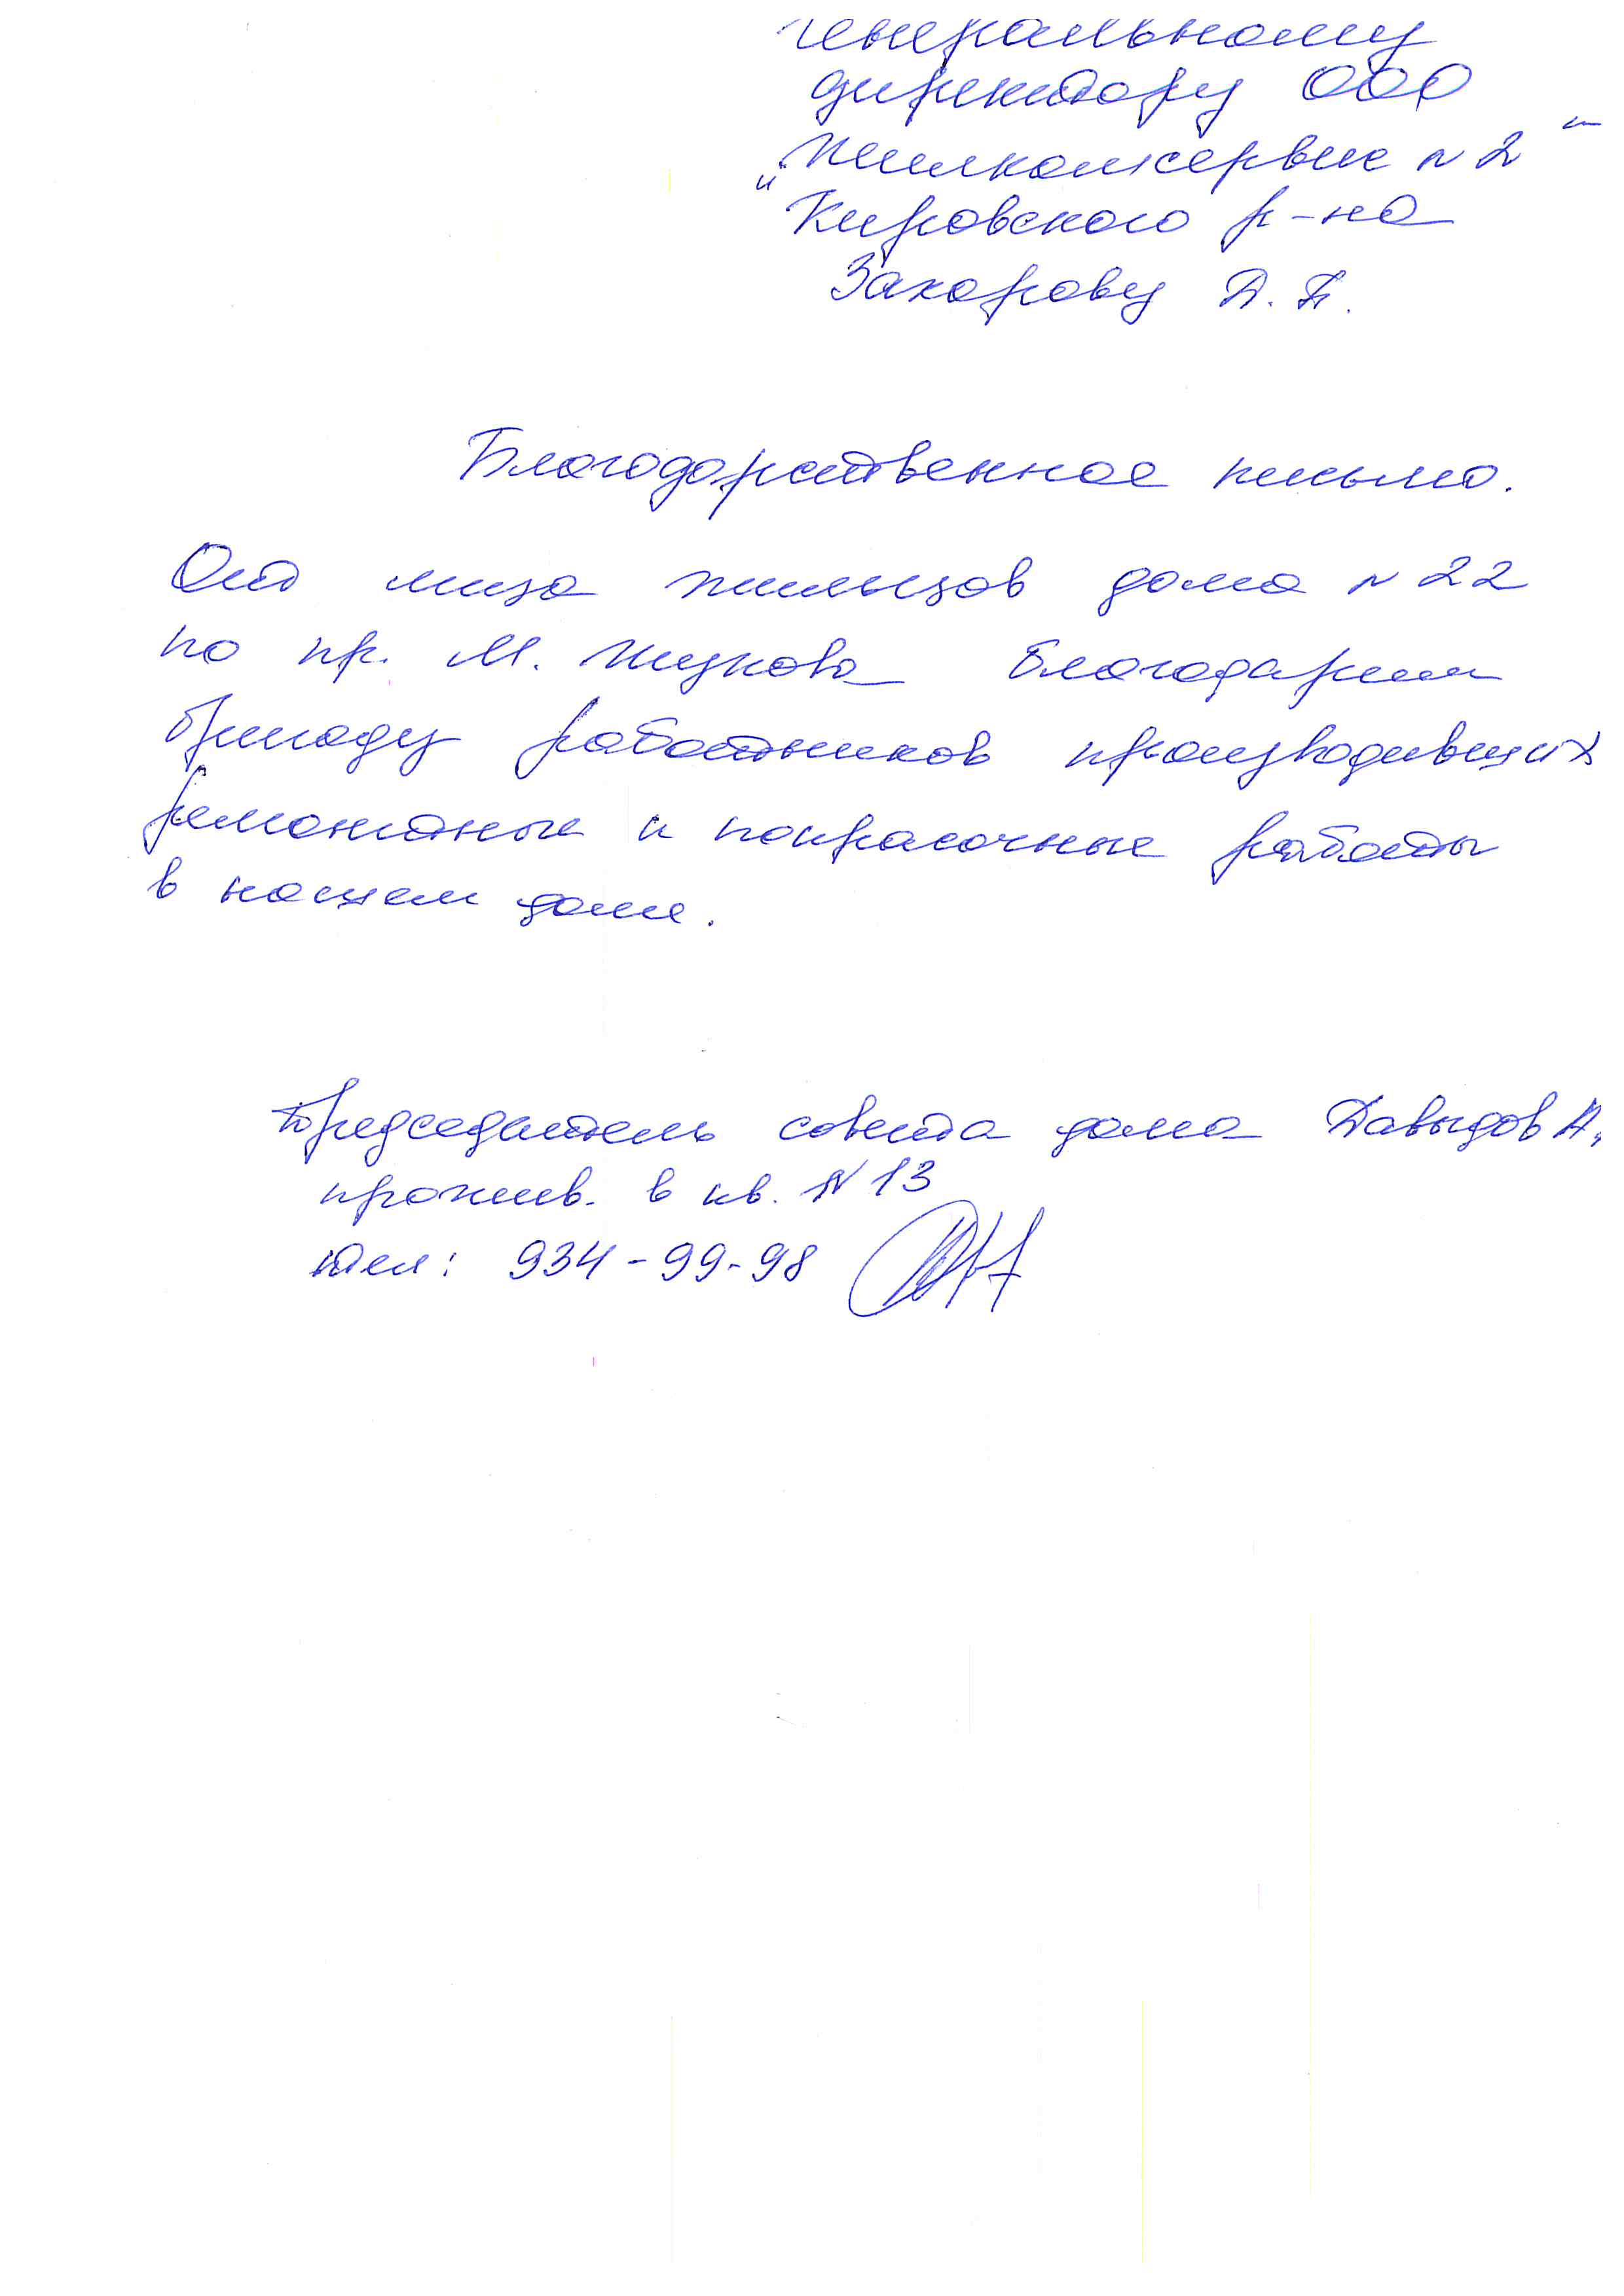 генеральному
директору ООО
"Жилкомсервис N 2"
Кировского р-на
Захарову Д. П.
Благодарственное письмо.
От лица жильцов дома N 22
по пр. М. Жукова благодарим
бригаду работников производивших
ремонтные и покрасочные работы
в нашем доме.
Председатель совета дома Давыдов А.
прожив. в кв. N 13
тел: 934-99-98